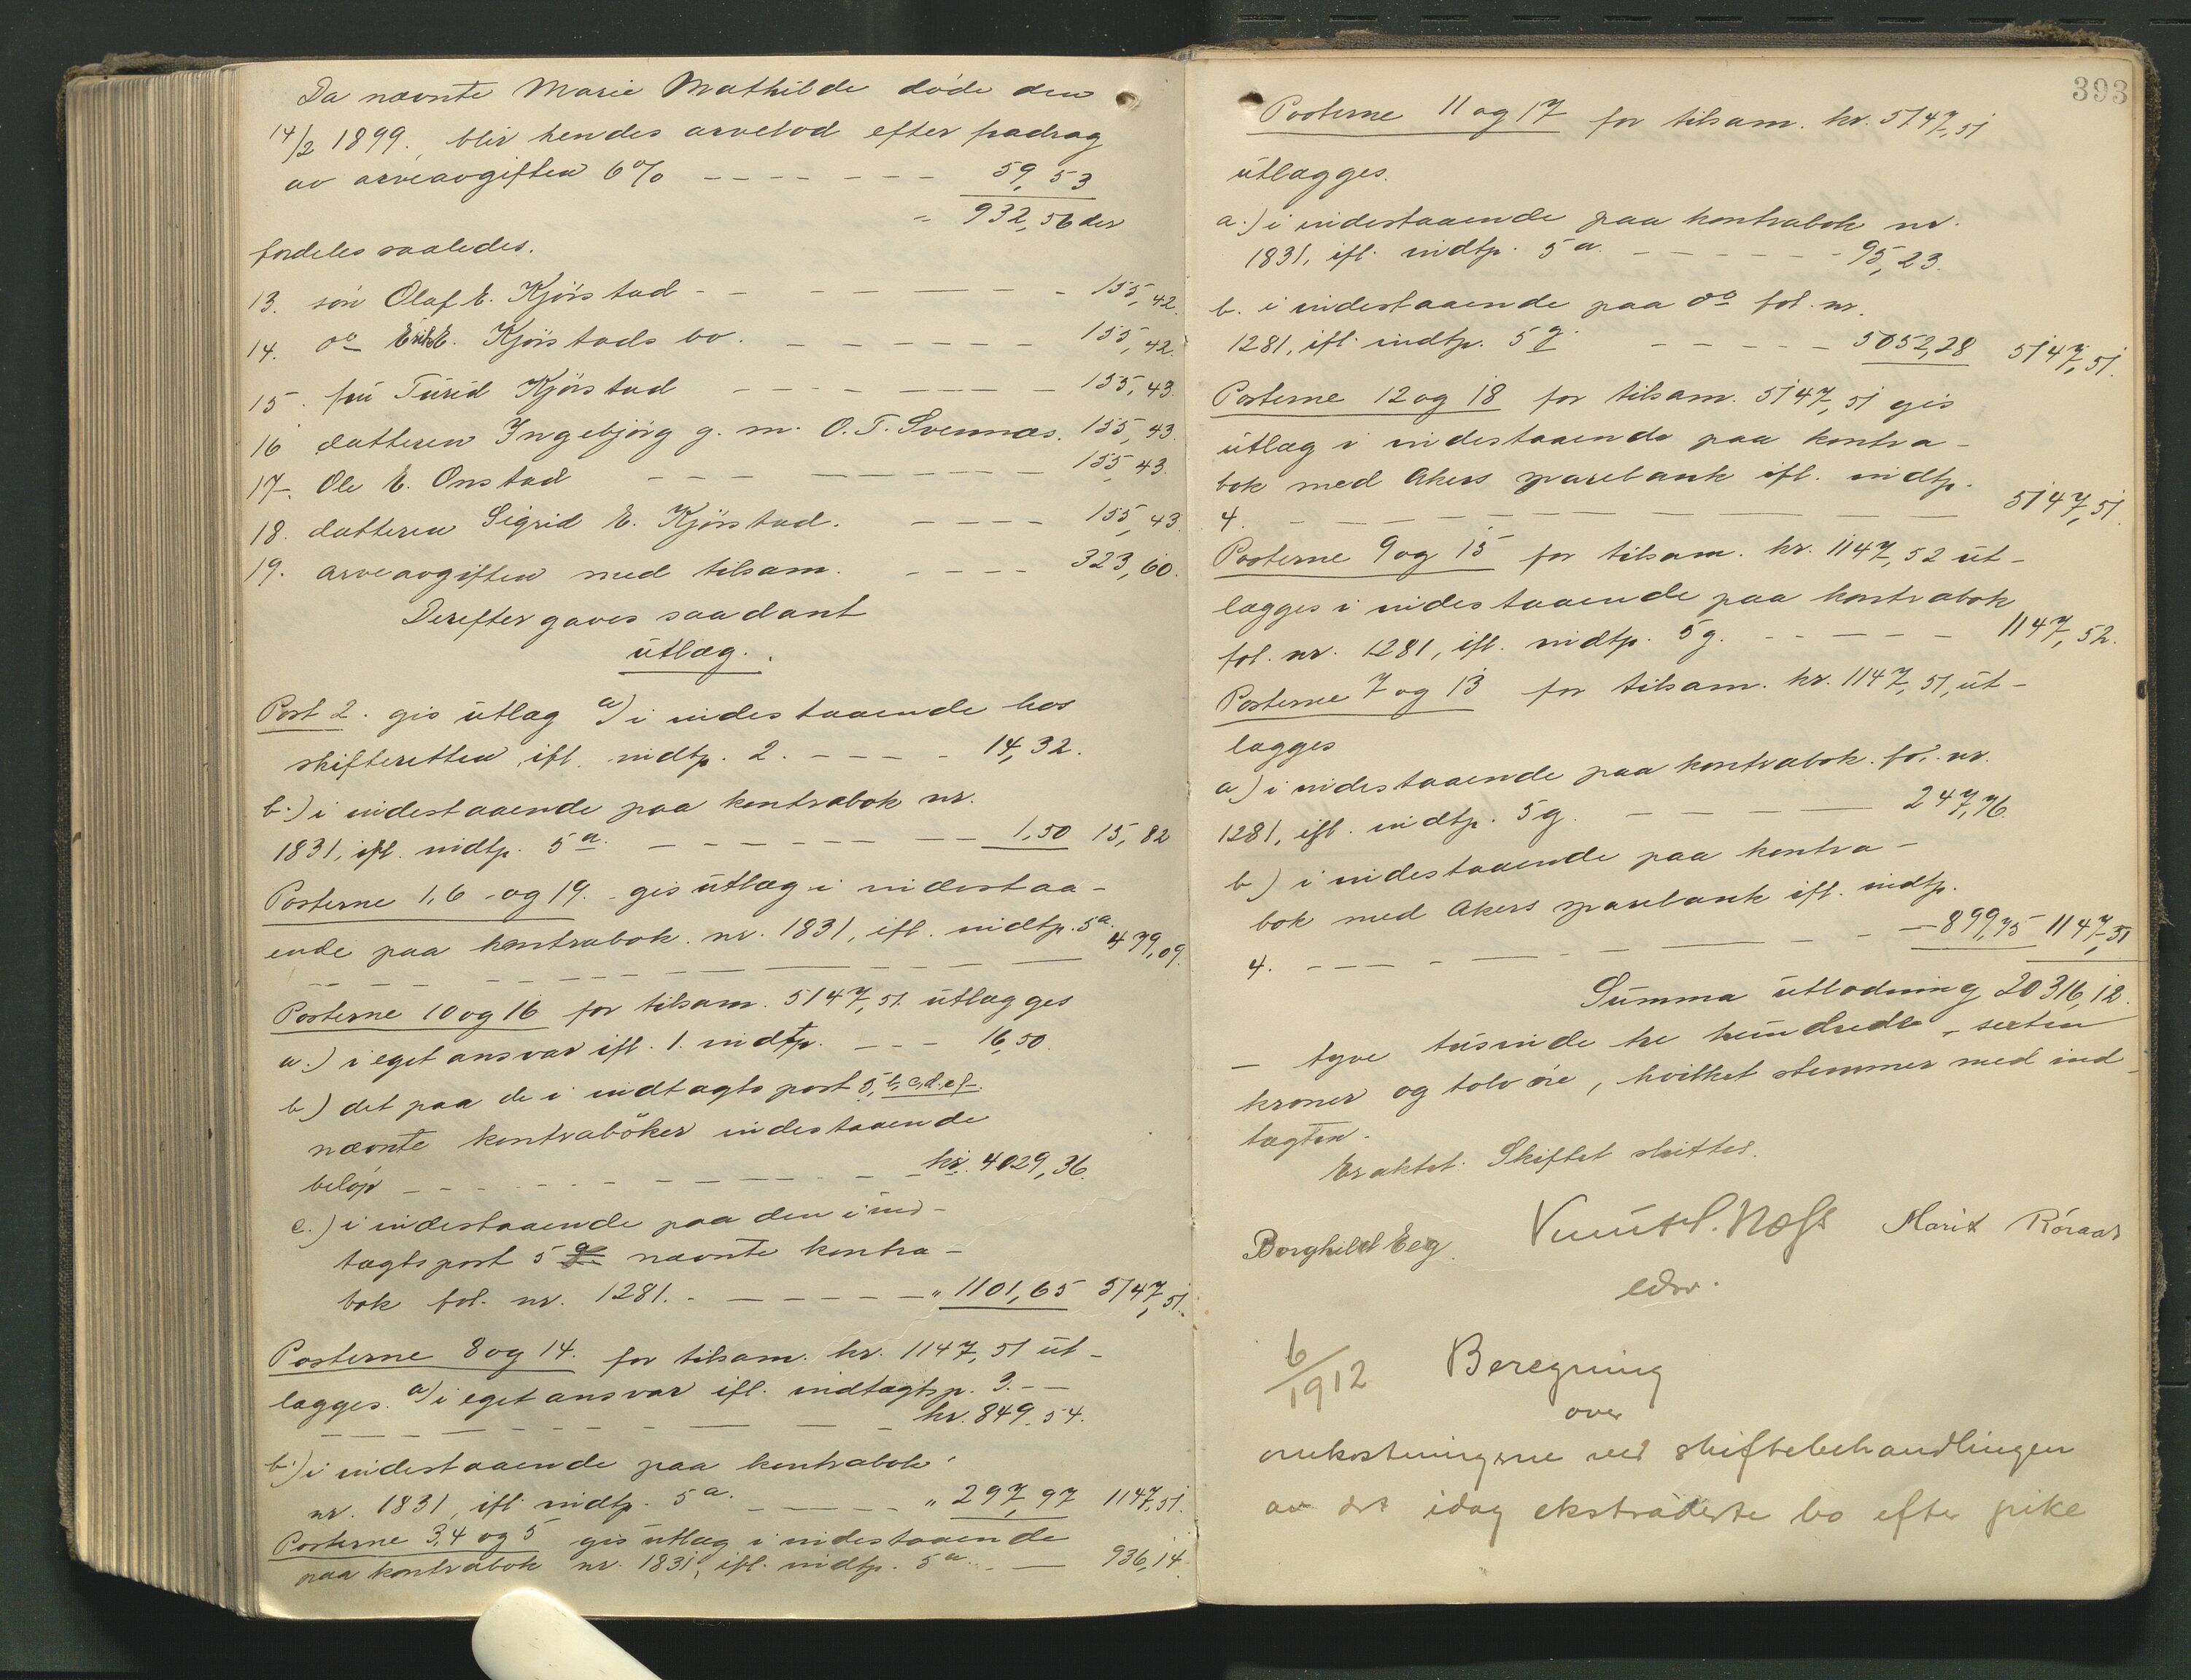 Da nævnte Marie Mathilde døde den
14/2 1899., blir hendes arvelod efter fradrag
av arveavgiften 6% - - - - - - - 59,53
" 932,56 der
fordeles saaledes.
13. søn Olaf E. Kjørstad - - - - - - - 155,42.
14. do Erik E. Kjørstads bo. - - - - - - 155,42.
15. fru Turid Kjørstad - - - - - - - 155,43.
16 datteren Ingebjørg g. m. O. T. Svennæs. 155,43.
17. Ole E. Onstad - - - - - - - 155,43.
18. datteren Sigrid E. Kjørstad. - - - - 155,43.
19. arveavgiften med tilsam. - - - - 323,60.
Derefter gaves saadant
utlæg.
Post 2. gis utlæg a) i indestaaende hos
skifteretten, ifl. indtp. 2. - - - - 14,32.
b.) i indestaaende paa kontrabok nr.
1831, ifl. indtp. 5a. - - - - - - - 1,50 15,82
Posterne 1,6 og 19. gis utlæg i indestaa-
ende paa kontrabok. nr. 1831, ifl. indtp. 5a.
- - - - - - - - - - - 479,09.
Posterne 10 og 16 for tilsam. 5147,51. utlægges
a.) i eget ansvar ifl. 1. indtp. - - - 16,50.
b) det paa de i indtægts post 5, b,c,d,e,f.
nævnte kontrabøker indestaaende
beløp - - - - - - - - - - kr. 4029,36.
c.) i indestaaende paa den i ind-
tægtspost 5 g nævnte kontra-
bok fol. nr. 1281. - - - - - - - " 1101,65 5147,51.
Posterne 8 og 14. for tilsam. kr. 1147,51 ut-
lægges. a) i eget ansvar ifl. indtægtsp. 3. - -
- - - - - - - - - - kr. 849,54.
b.) i indestaaende paa kontrabok
nr. 1831, ifl. indtp. 5a. - - - - - " 297,97 1147,51.
Posterne 3,4 og 5 gis utlæg i indestaaende
paa kontrabok nr. 1831, ifl. indtp. 5a. - - 936,14.
393
Posterne 11 og 17 for tilsam. kr. 5147,51
utlægges.
a.) i indestaaende paa kontrabok nr.
1831, ifl. indtp. 5a. - - - - - - - 95,23.
b. i indestaaende paa do fol. nr.
1281, ifl. indtp. 5g. - - - - - 5052,28 5147,51.
Posterne 12 og 18 for tilsam. 5147,51 gis
utlæg i indestaaende paa kontra-
bok med Akers sparebank ifl. indtp.
4. - - - - - - - - - - 5147,51.
Posterne 9 og 15 for tilsam. kr. 1147,52 ut-
lægges i indestaaende paa kontrabok
fol. nr. 1281, ifl. indtp. 5g. - - - - - - 1147,52.
Posterne 7 og 13 for tilsam. kr. 1147,51, ut-
lægges
a) i indestaaende paa kontrabok. fol. nr.
1281, ifl. indtp. 5g. - - - - - 247,76.
b) i indestaaende paa kontra-
bok med Akers sparebank ifl. indtp.
4. - - - - - - - - - - 899,75 1147,51
Summa utlodning 20316,12.
- tyve tusinde tre hundrede - sexten
kroner og tolv øre, hvilket stemmer med ind-
tægten.
Eraktet: Skiftet sluttet.
Borghild Eeg. Knut H. Næss Marit Röraas
edsv.
6/1912 Beregning
over
omkostningerne ved skiftebehandlingen
av det idag ekstraderte bo efter pike